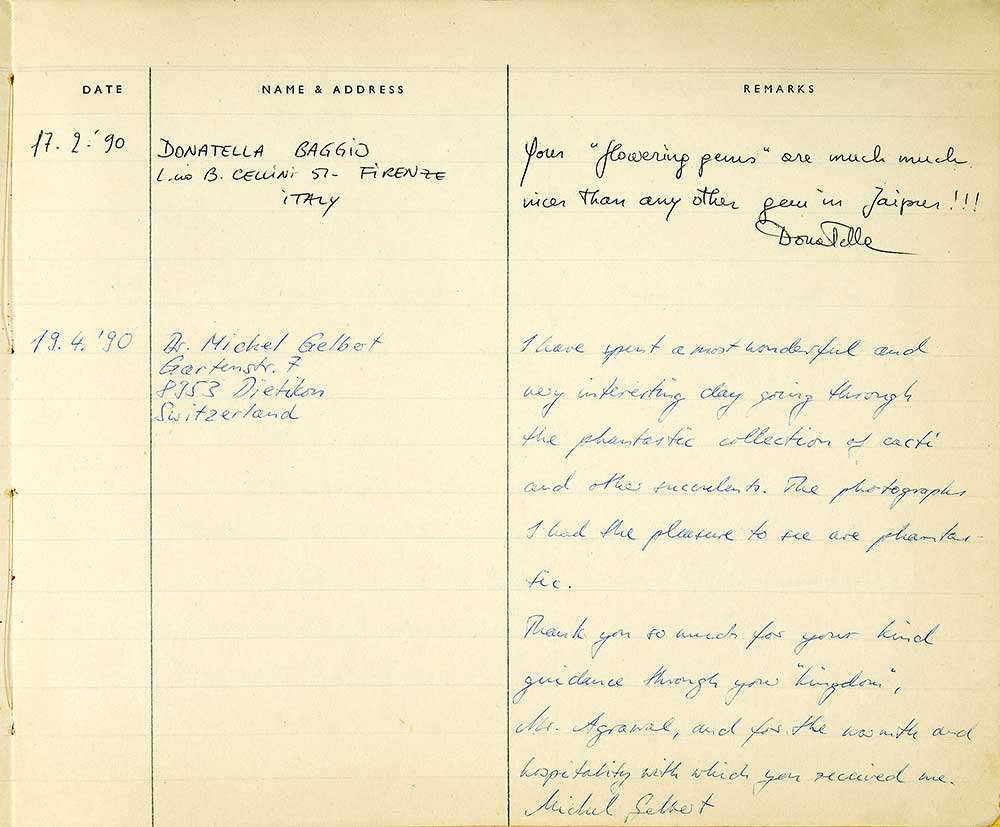 DATE
NAME & ADDRESS
REMARKS
17. 2. '90
DONATELLA BAGGIO
L.no B. CELLINI 51- FIRENZE
ITALY
Your "flowering gems" are much much
nicer than any other gem in Jaipur!!!
Donatella
19.4.'90
Dr. Michel Gelbert
Gartenstr. 7
8953 Dietikon
Switzerland
I have spent a most wonderful and
very interesting day going through
the phantastic collection of cacti
and other succulents. The photographs
I had the pleasure to see are phantas-
tic.
Thank you so much for your kind
guidance through your "kingdom",
Mr. Agrawal, and for the warmth and
hospitality with which you received me.
Michel Gelbert